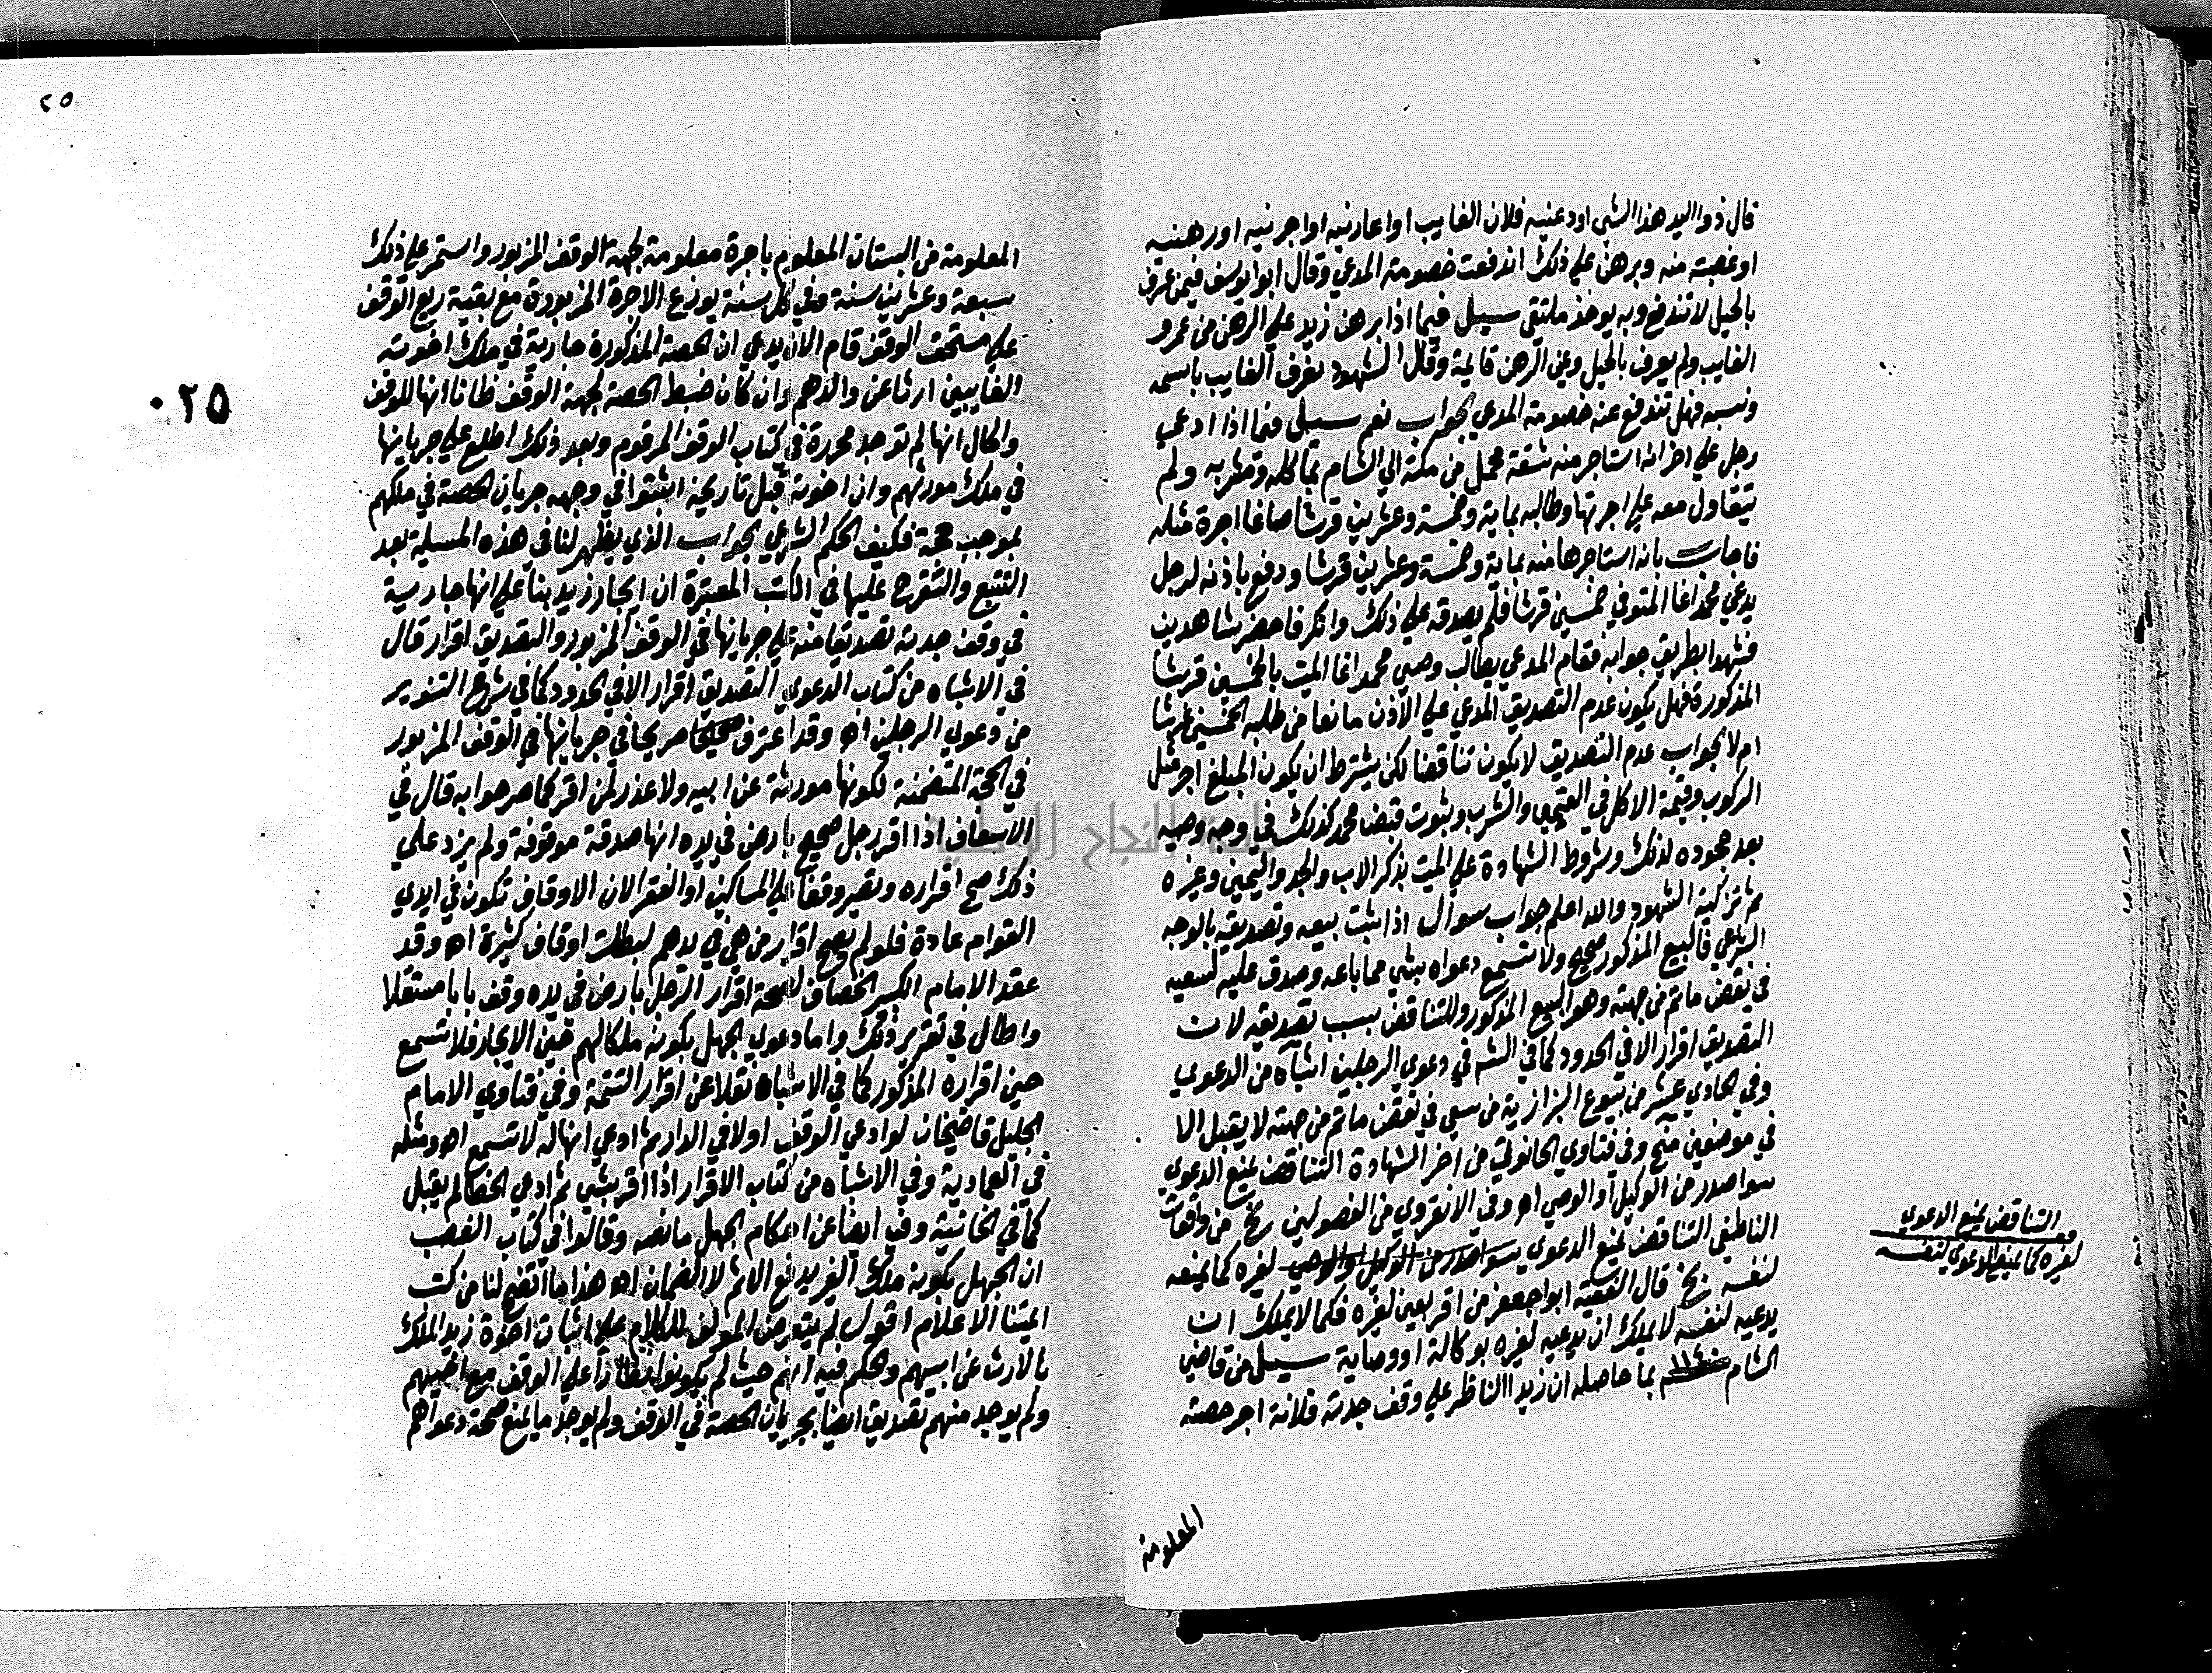 قال ذو اليد هذا الشي اودعنيه فلان الغايب او اعارنيه او اجرنيه او رهننيه
او غصبته منه وبرهن علي ذلك اندفعت خصومة المدعي وقال ابو يوسف فيمن عرف
بالحيل لا تندفع وبه يوخذ ملتقي سيل فيما اذا برهن زيد علي الرهن من عمرو
الغايب ولم يعرف بالحيل وعين الرهن قايمة وقال الشهود نعرف الغايب باسمه
ونسبه فهل تندفع عنه خصومة المدعي الجواب نعم سيل فيما اذا ادعي
رجل علي اخر انه استاجر منه شقة محمل من مكة الي الشام بماكله ومشربه ولم
يتقاول معه علي اجرتها وطالبه بماية وخمسة وعشرين قرشا صاغا اجرة مثله
فاجاب بانه استاجرها منه بماية وخمسة وعشرين قرشا ودفع باذنه لرجل
يدعي محمد اغا المتوفي خمسين قرشا فلم يصدقه علي ذلك وانكر فاحضر شاهدين
فشهدا بطريق جوابه فقام المدعي يطالب وصي محمد اغا الميت بالخمسين قرشا
المذكورة فهل يكون عدم التصديق المدعي علي الاذن مانعا من طلبه الخمسين قرشا
ام لا الجواب عدم التصديق لا يكون تناقضا لكن يشترط ان يكون المبلغ اجر مثل
الركوب وقيمة الاكل في القيمي والشرب وثبوت قبض محمد كذلك في وجه وصيه
بعد جحوده لذلك وشروط الشهادة علي الميت بذكر الاب والجد واليمين وغيره
ثم تزكية الشهود والله اعلم جواب سوال اذا ثبت بيعه وتصديقه بالوجه
الشرعي فالبيع المذكور صحيح ولا تسمع دعواه بشي مما باعه وصدق عليه لسعيه
في نقض ما تم من جهته وهو البيع المذكور وللتناقض بسبب تصديقه لان
التصديق اقرار الا في الحدود كما في الشه في دعوي الرجلين اشباه من الدعوي
وفي الحادي عشر من بيوع البزازية من سعي في نقض ما تم من جهته لا يقبل الا
في موضعين منح وفي فتاوي الحانوتي من اخر الشهادة التناقض يمنع الدعوي
سوا صدر من الوكيل او الوصي اه وفي الانقروي من الفصولين من واقعات
الناطفي التناقض يمنع الدعوي لغيره كما يمنعه
لنفسه قال الفقيه ابو جعفر من اقر بعين لغيره فكما لا يملك ان
يدعيه لنفسه لا يملك ان يدعيه لغيره بوكالة او وصاية سيل من قاضي
الشام بما حاصله ان زيدا الناظر علي وقف جدته فلانة اجر حصته
المعلومة
التناقض يمنع الدعوي
لغيره كما يمنع الدعوي لنفسه
٢٥
٠٢٥
المعلومة من البستان المعلوم باجرة معلومة لجهة الوقف المزبور واستمر علي ذلك
سبعة وعشرين سنة وفي كل سنة يوزع الاجرة المزبورة مع بقية ريع الوقف
علي مستحق الوقف قام الان يدعي ان الحصة المذكورة جارية في ملك اخوته
الغايبين ارثا عن والدهم وان كان ضبط الحصة لجهة الوقف ظانا انها للوقف
والحال انها لم توجد محررة في كتاب الوقف المرقوم وبعد ذلك اطلع علي جريانها
في ملك مورثهم وان اخوته قبل تاريخه اثبتوا في وجهه جريان الحصة في ملكهم
بموجب حجة فكيف الحكم الشرعي الجواب الذي يظهر لنا في هذه المسيلة بعد
التتبع والتنقرح عليها في الكتب المعتبرة ان ايجار زيد بنا علي انها جارية
في وقف جدته تصديقا منه علي جريانها في الوقف المزبور والتصديق اقرار قال
في الاشباه من كتاب الدعوي التصديق اقرار الا في الحدود كما في شرح التنوير
من دعوي الرجلين اه وقد اعترف صريحا في جريانها في الوقف المزبور
في الحجة المتضمنة لكونها مورثة عن ابيه ولا عذر لمن اقر كما هو جوابه قال في
الاسعاف اذا اقر رجل صحيح بارض في يده انها صدقة موقوفة ولم يزد علي
ذلك صح اقراره وتصير وقفا علي المساكين او الفقرا لان الاوقاف تكون في ايدي
القوام عادة فلو لم يصح اقرار من هي في يدهم لبطلت اوقاف كثيرة اه وقد
عقد الامام الكبير الخصاف لصحة اقرار الرجل بارض في يده وقف بابا مستقلا
واطال في تقرير ذلك واما دعوي الجهل بكونه ملكا لهم حين الايجار فلا تسمع
حين اقراره المذكور كما في الاشباه نقلا عن اقرار التتمة وفي فتاوي الامام
الجليل قاضيخان لو ادعي الوقف اولا في الدار ثم ادعي انها له لا تسمع اه ومثله
في العمادية وفي الاشباه من كتاب الاقرار اذا اقر بشي ثم ادعي الخطا لم يقبل
كما في الخانية وفي ايضا عن احكام الجهل ما نصه وقالوا في كتاب الغصب
ان الجهل بكونه ملك الغير يدفع الاثم لا الضمان اه هذا ما اتضح لنا من كتب
ايمتنا الاعلام اقول لم يتعرض المولف للكلام علي اثبات اخوة زيد الملك
بالارث عن ابيهم وحكم فيه انهم حيث لم يكونوا نظارا علي الوقف مع اخيهم
ولم يوجد منهم تصديق ايضا بجريان الحصة في الوقف ولم يوجد ما يمنع صحة دعواهم